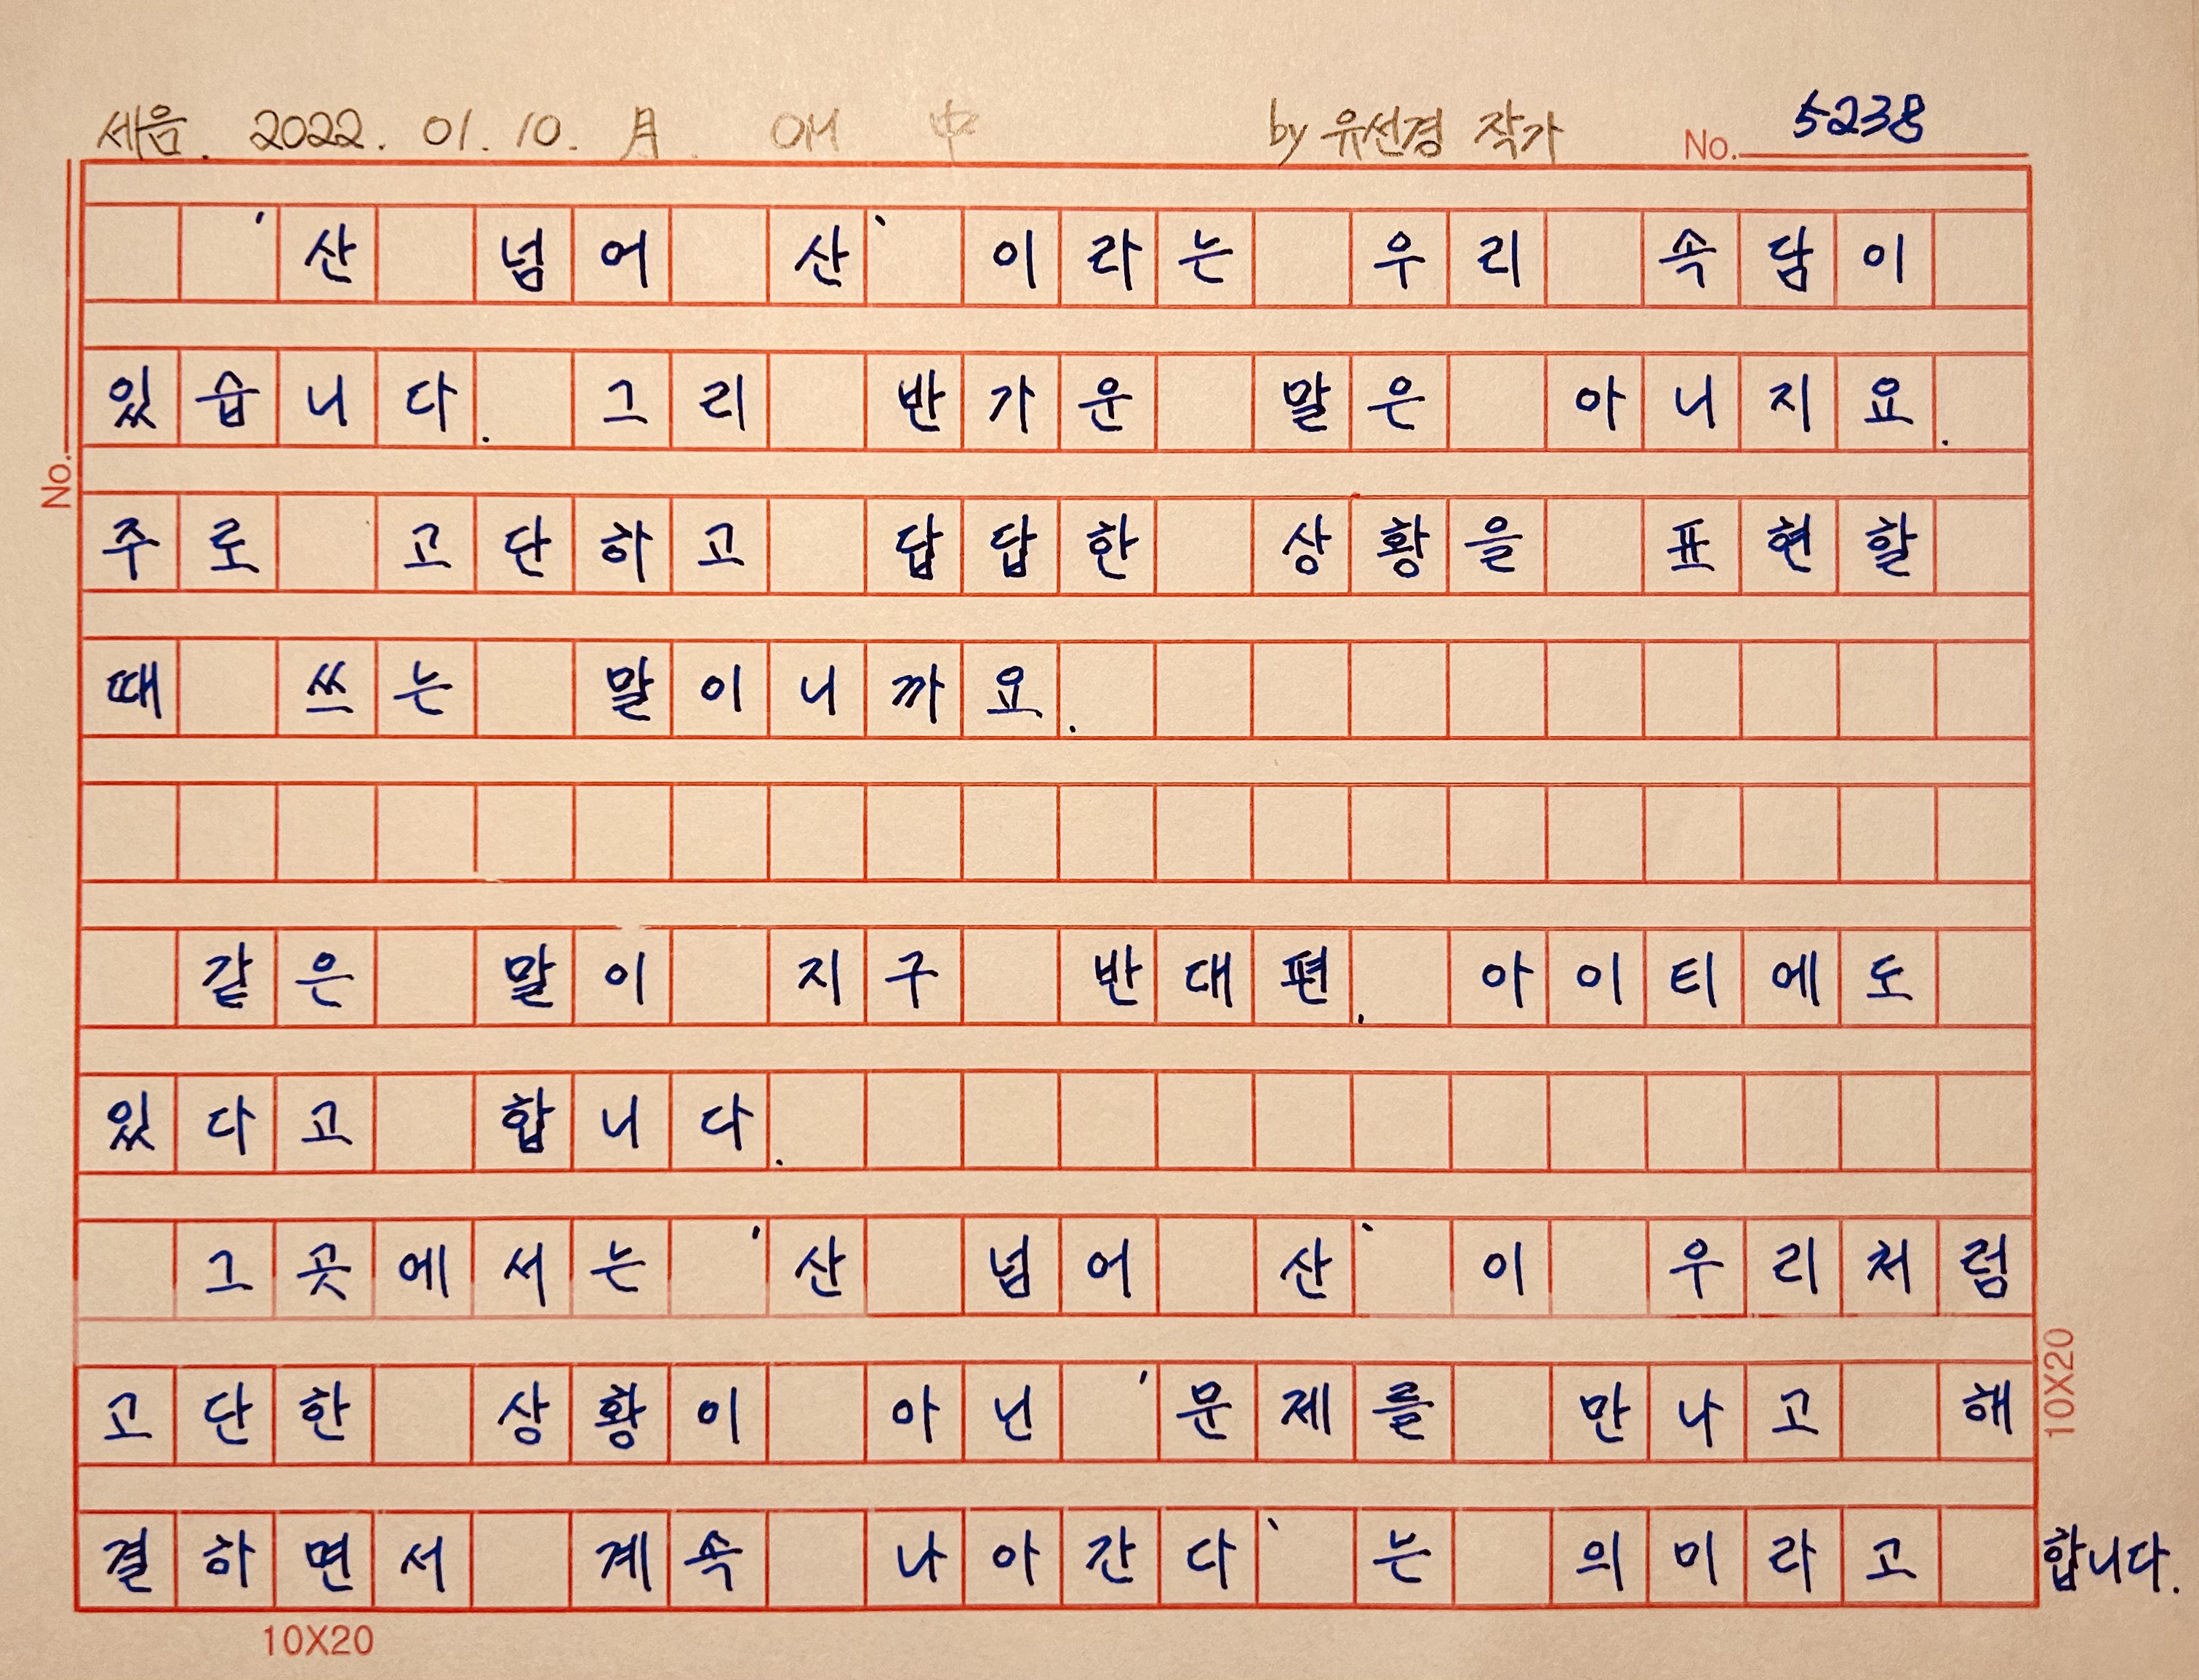 세음. 2022. 01. 10. 月. 애 中 by 유선경 작가 No. 5238
'산 넘어 산' 이라는 우리 속담이
있습니다. 그리 반가운 말은 아니지요.
No.
주로 고단하고 답답한 상황을 표현할
때 쓰는 말이니까요.
같은 말이 지구 반대편. 아이티에도
있다고 합니다.
그곳에서는 '산 넘어 산' 이 우리처럼
고단한 상황이 아닌 '문제를 만나고 해
10X20
결하면서 계속 나아간다' 는 의미라고 합니다.
10X20